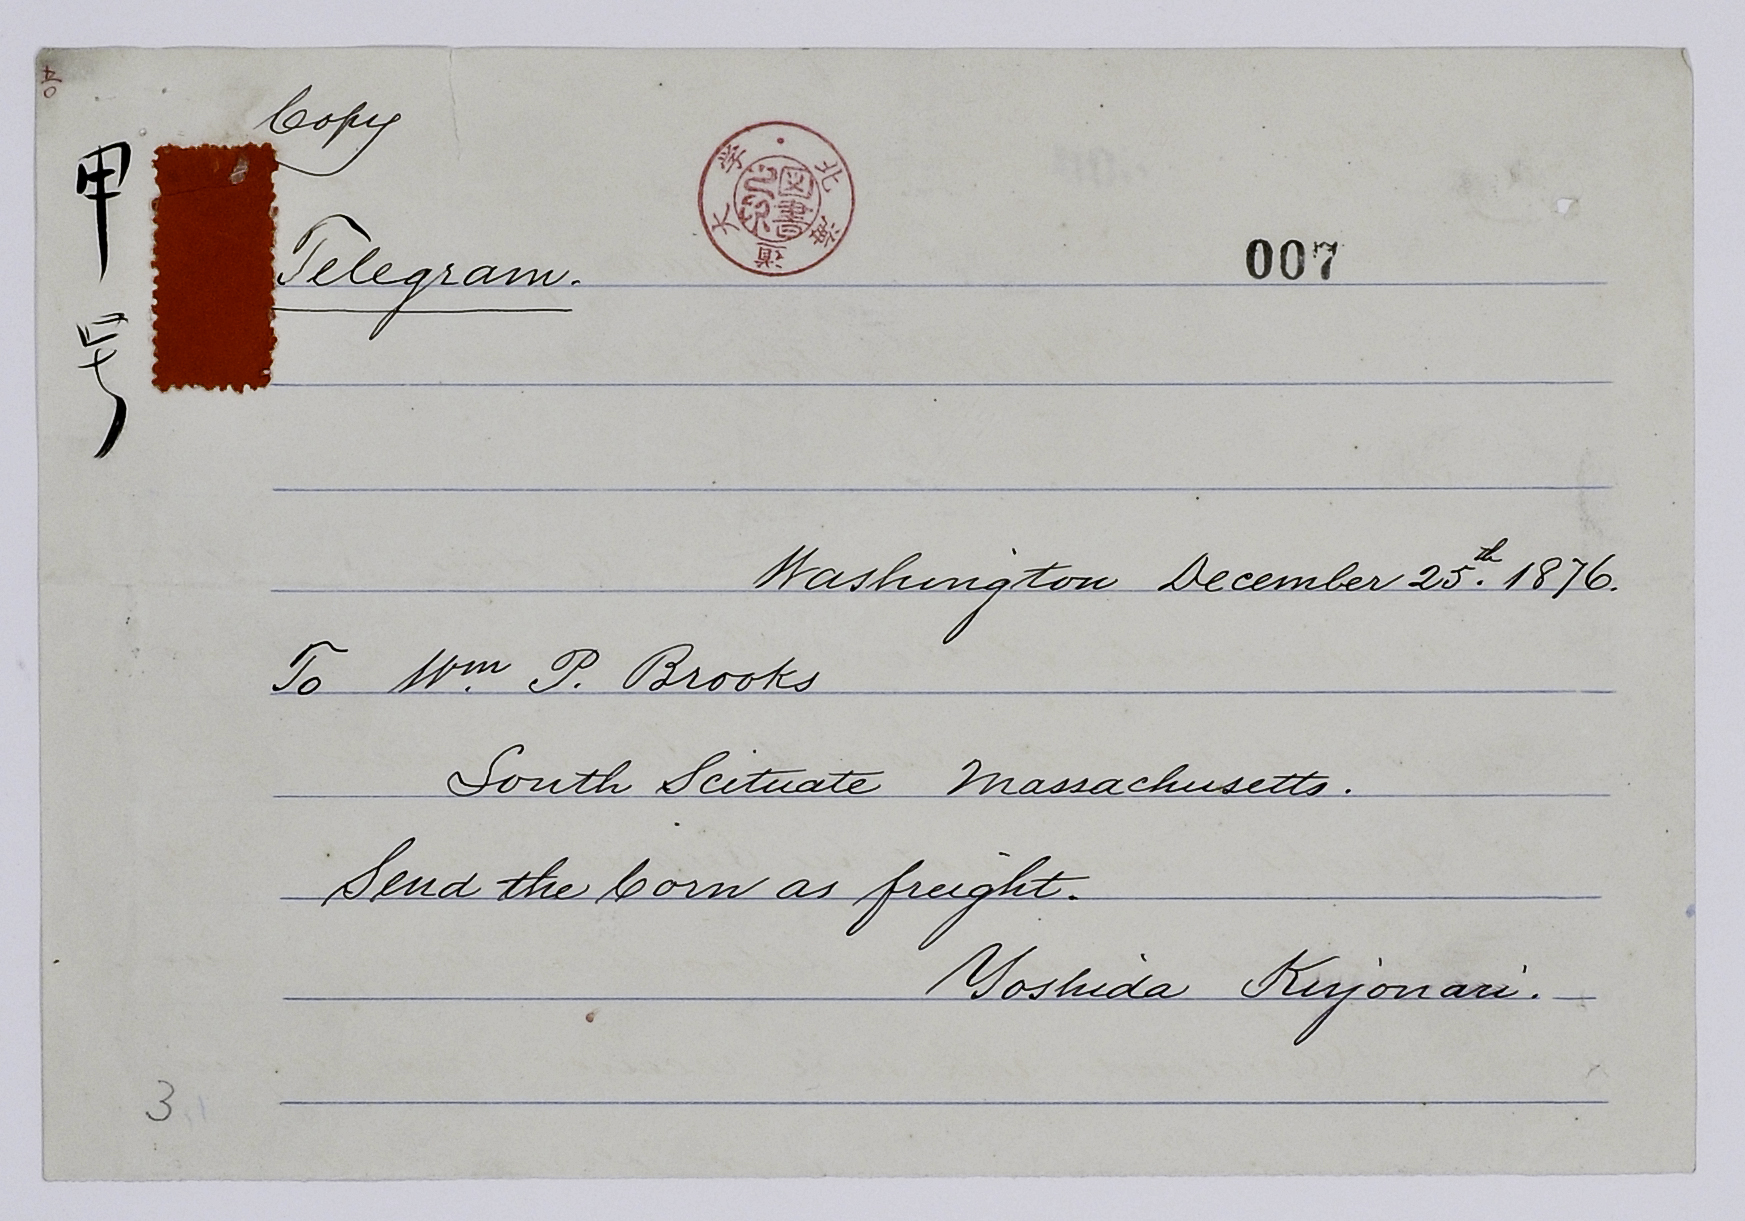 40
Copy
甲号
北海道大学
図書
Telegram.
007
Washington December 25th. 1876.
To Wm. P. Brooks
South Scituate Massachusetts.
Send the Corn as freight.
Yoshida Kiyonari.
3